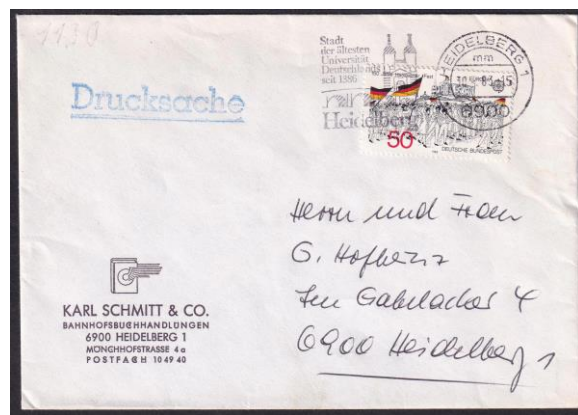 1130
Stadt
der ältesten
Universität
Deutschlands
seit 1386
Heidelberg
HEIDELBERG 1
mm
6900
50
DEUTSCHE BUNDESPOST
Drucksache
Herrn und Frau
G. Hofherr
Im Gabelacker 4
6900 Heidelberg 1
KARL SCHMITT & CO.
BAHNHOFSBUCHHANDLUNGEN
6900 HEIDELBERG 1
MÖNCHHOFSTRASSE 4a
POSTFACH 10 49 40